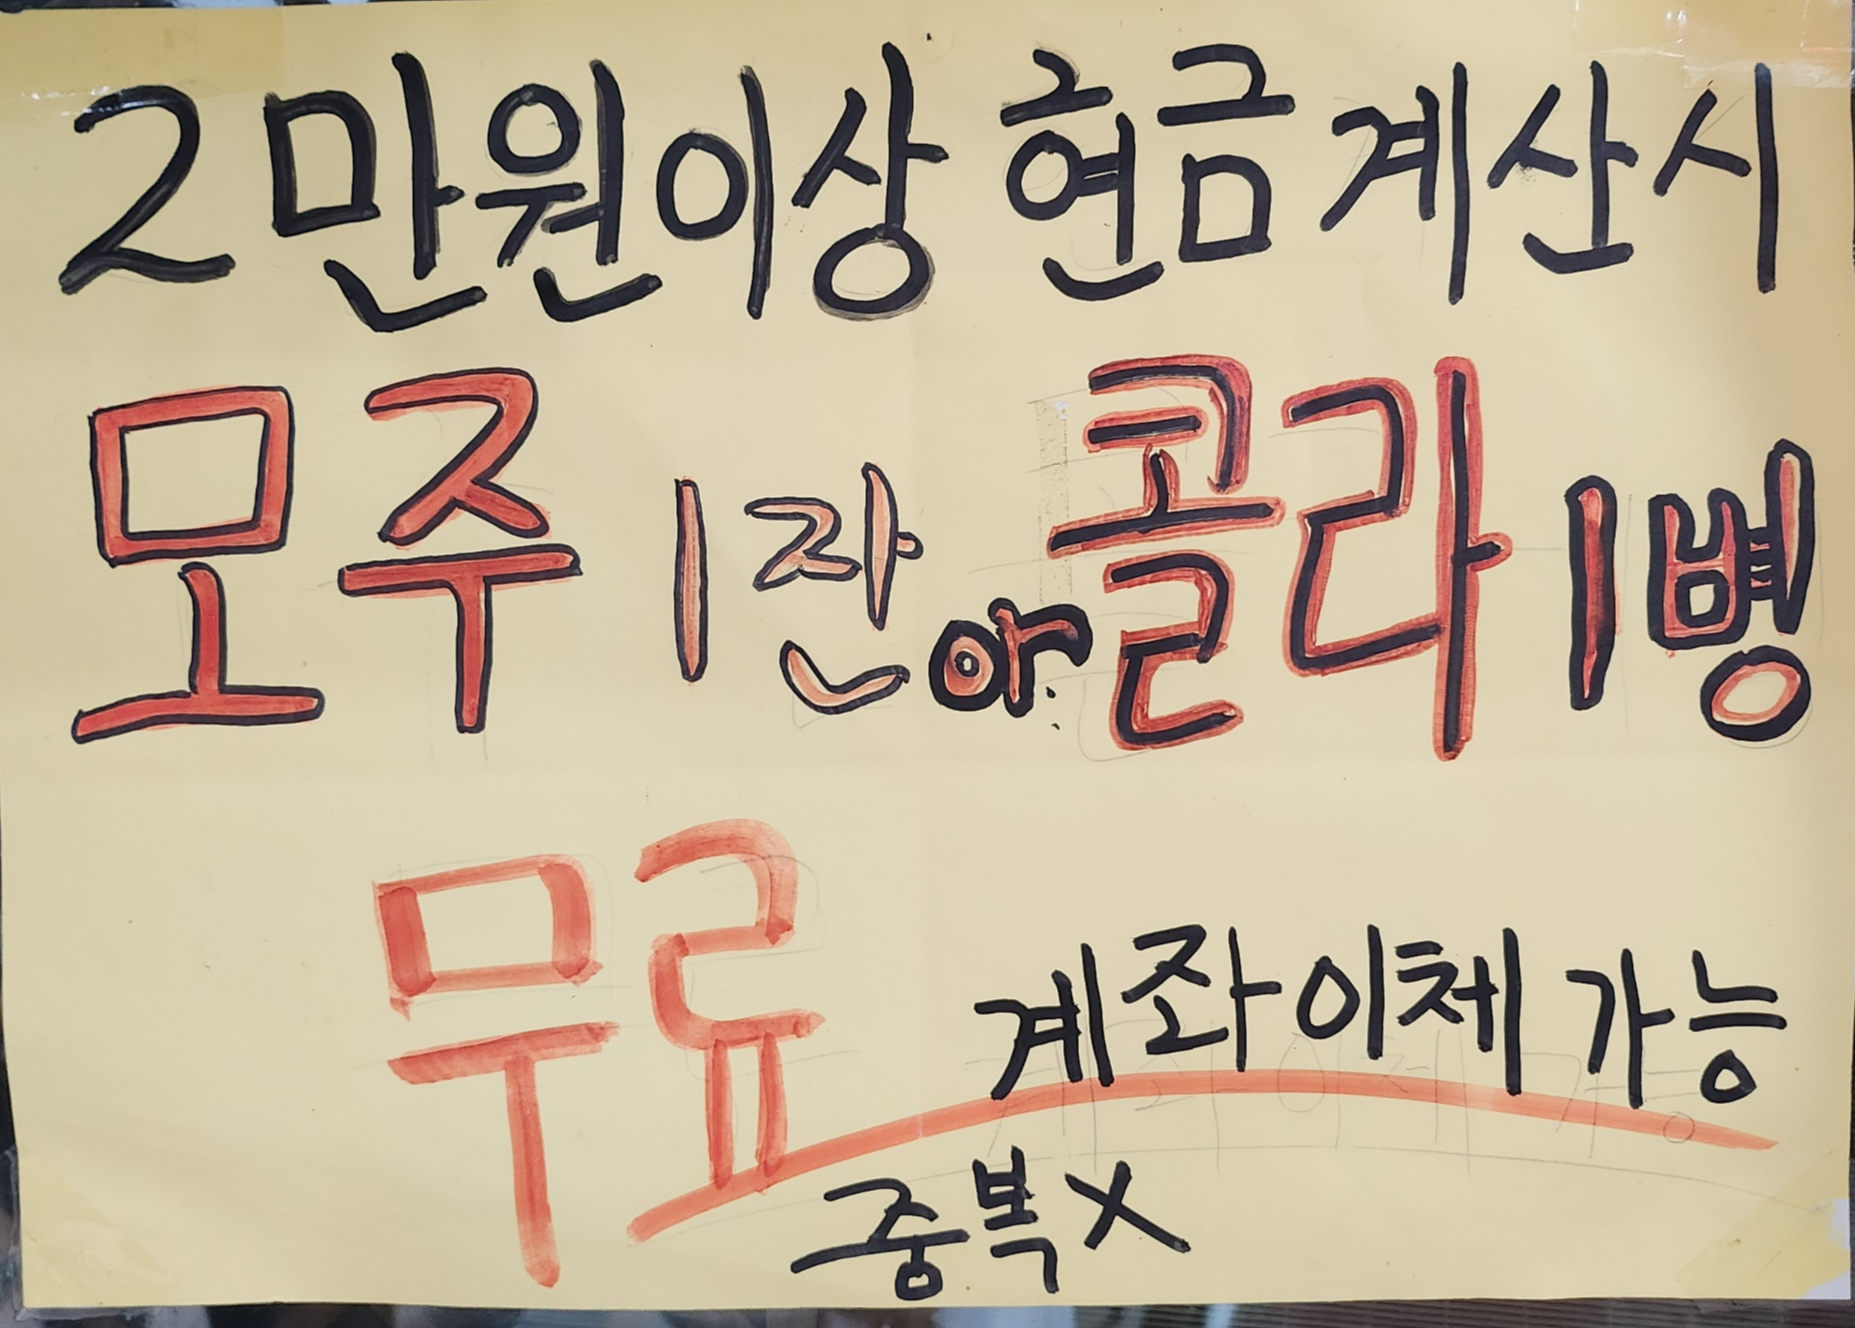 2만원이상 현금계산시
모주 1잔 or 콜라 1병
무료 계좌이체 가능
중복X